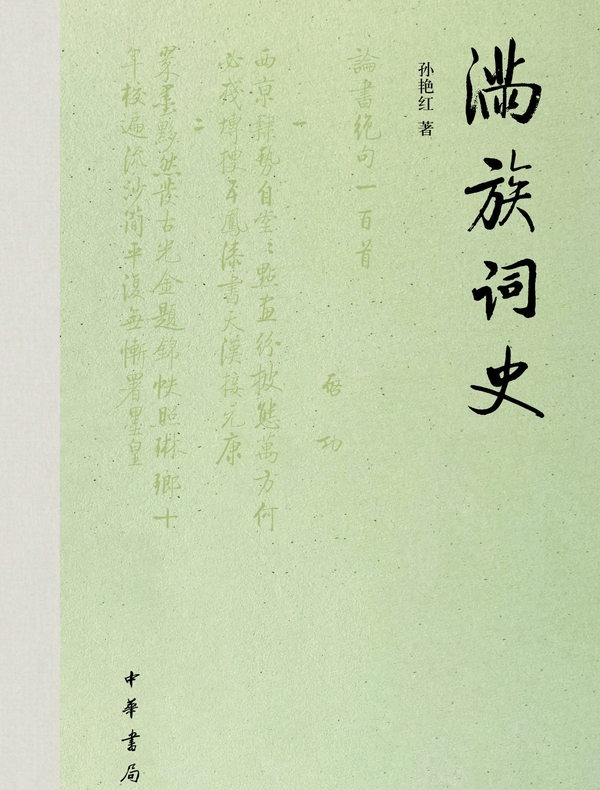 满族词史
孙艳红 著
論書絕句一百首
啓功
一
西京隸勢自堂〻點畫紛披態萬方何
必殘塼搜五鳳漆書天漢接元康
二
翠墨黟然發古光金題錦帙照琳瑯十
年校遍流沙簡平復無慚署墨皇
中華書局